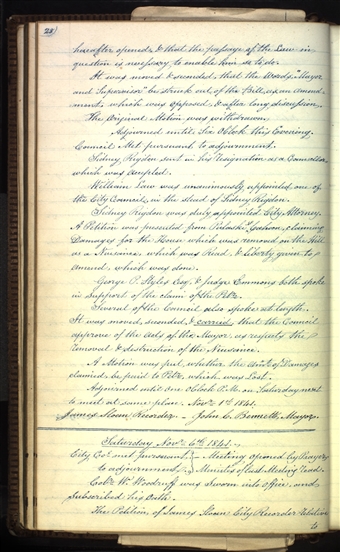 28)
hereafter opened & that the passage of the Law in
question is necessary to enable him so to do.
It was moved & seconded, that the Words, "Mayor
and Supervisor" be struck out of the Bill, as an amend-
ment, which was opposed, & after long discussion,
The Original Motion was withdrawn
Adjourned until Six OClock this Evening.
Council Met pursuant to adjournment.
Sidney Rigdon sent in his Resignation as a Councillor
which was Accepted.
William Law was unanimously appointed one of
the City Council, in the stead of Sidney Rigdon.
Sidney Rigdon was duly appointed City Attorney.
A Petition was presented from Pulaski Cashon, claiming
Damages for the House which was removed on the Hill
as a Nuisance which was Read, & liberty given to
amend, which was done.
George P. Styles Esq. & Judge Emmons both spoke
in Support of the claim of the Petr.
Several of the Council also spoke at length.
It was moved, seconded, & carried, that the Council
approve of the Acts of the Mayor, as respects the
removal & destruction of the Nuisance.
A Motion was put, whether the Amt. of Damages
claimed be paid to Petr. which was Lost.
Adjourned until One OClock P.M. on Saturday next
to meet at same place. Novr. 1st 1841.
James Sloan, Recorder. - John C. Bennett, Mayor
Saturday Novr. 6th 1841.
City Col. met pursuant Meeting opened by Prayer
to adjournment. Minutes of last Meeting read.
Col. W. Woodruff was Sworn into Office, and
Subscribed his Oath.
The Petition of James Sloan City Recorder Relative
to